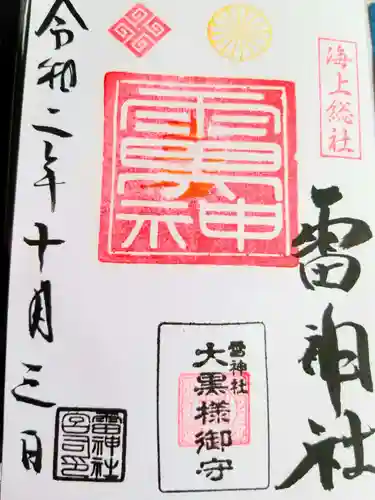 海上総社
雷神社
雷神社
大黒様御守
令和二年十月三日
雷神社
宮司之印